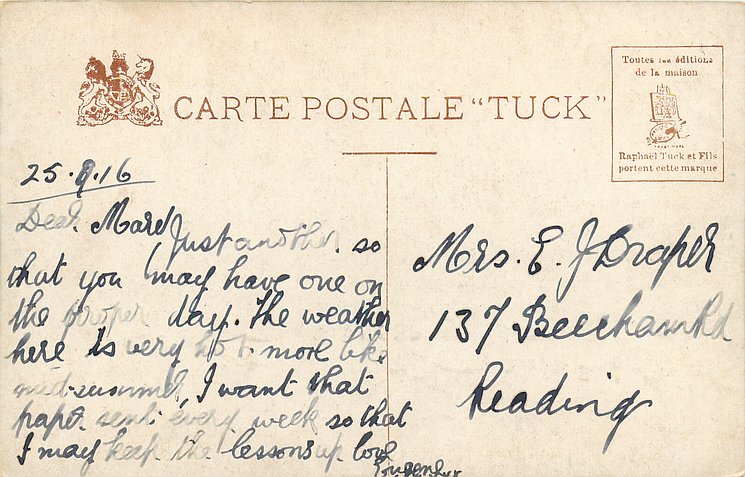 CARTE POSTALE "TUCK"
Toutes les éditions
de la maison
Raphaël Tuck et Fils
portent cette marque
25.9.16
Dear
Just another so
that you may have one on
the proper day. The weather
here is very hot more like
mid-summer, I want that
paper sent every week so that
I may keep the lessons up love
Mrs. E. J Draper
137 Beecham Rd
Reading